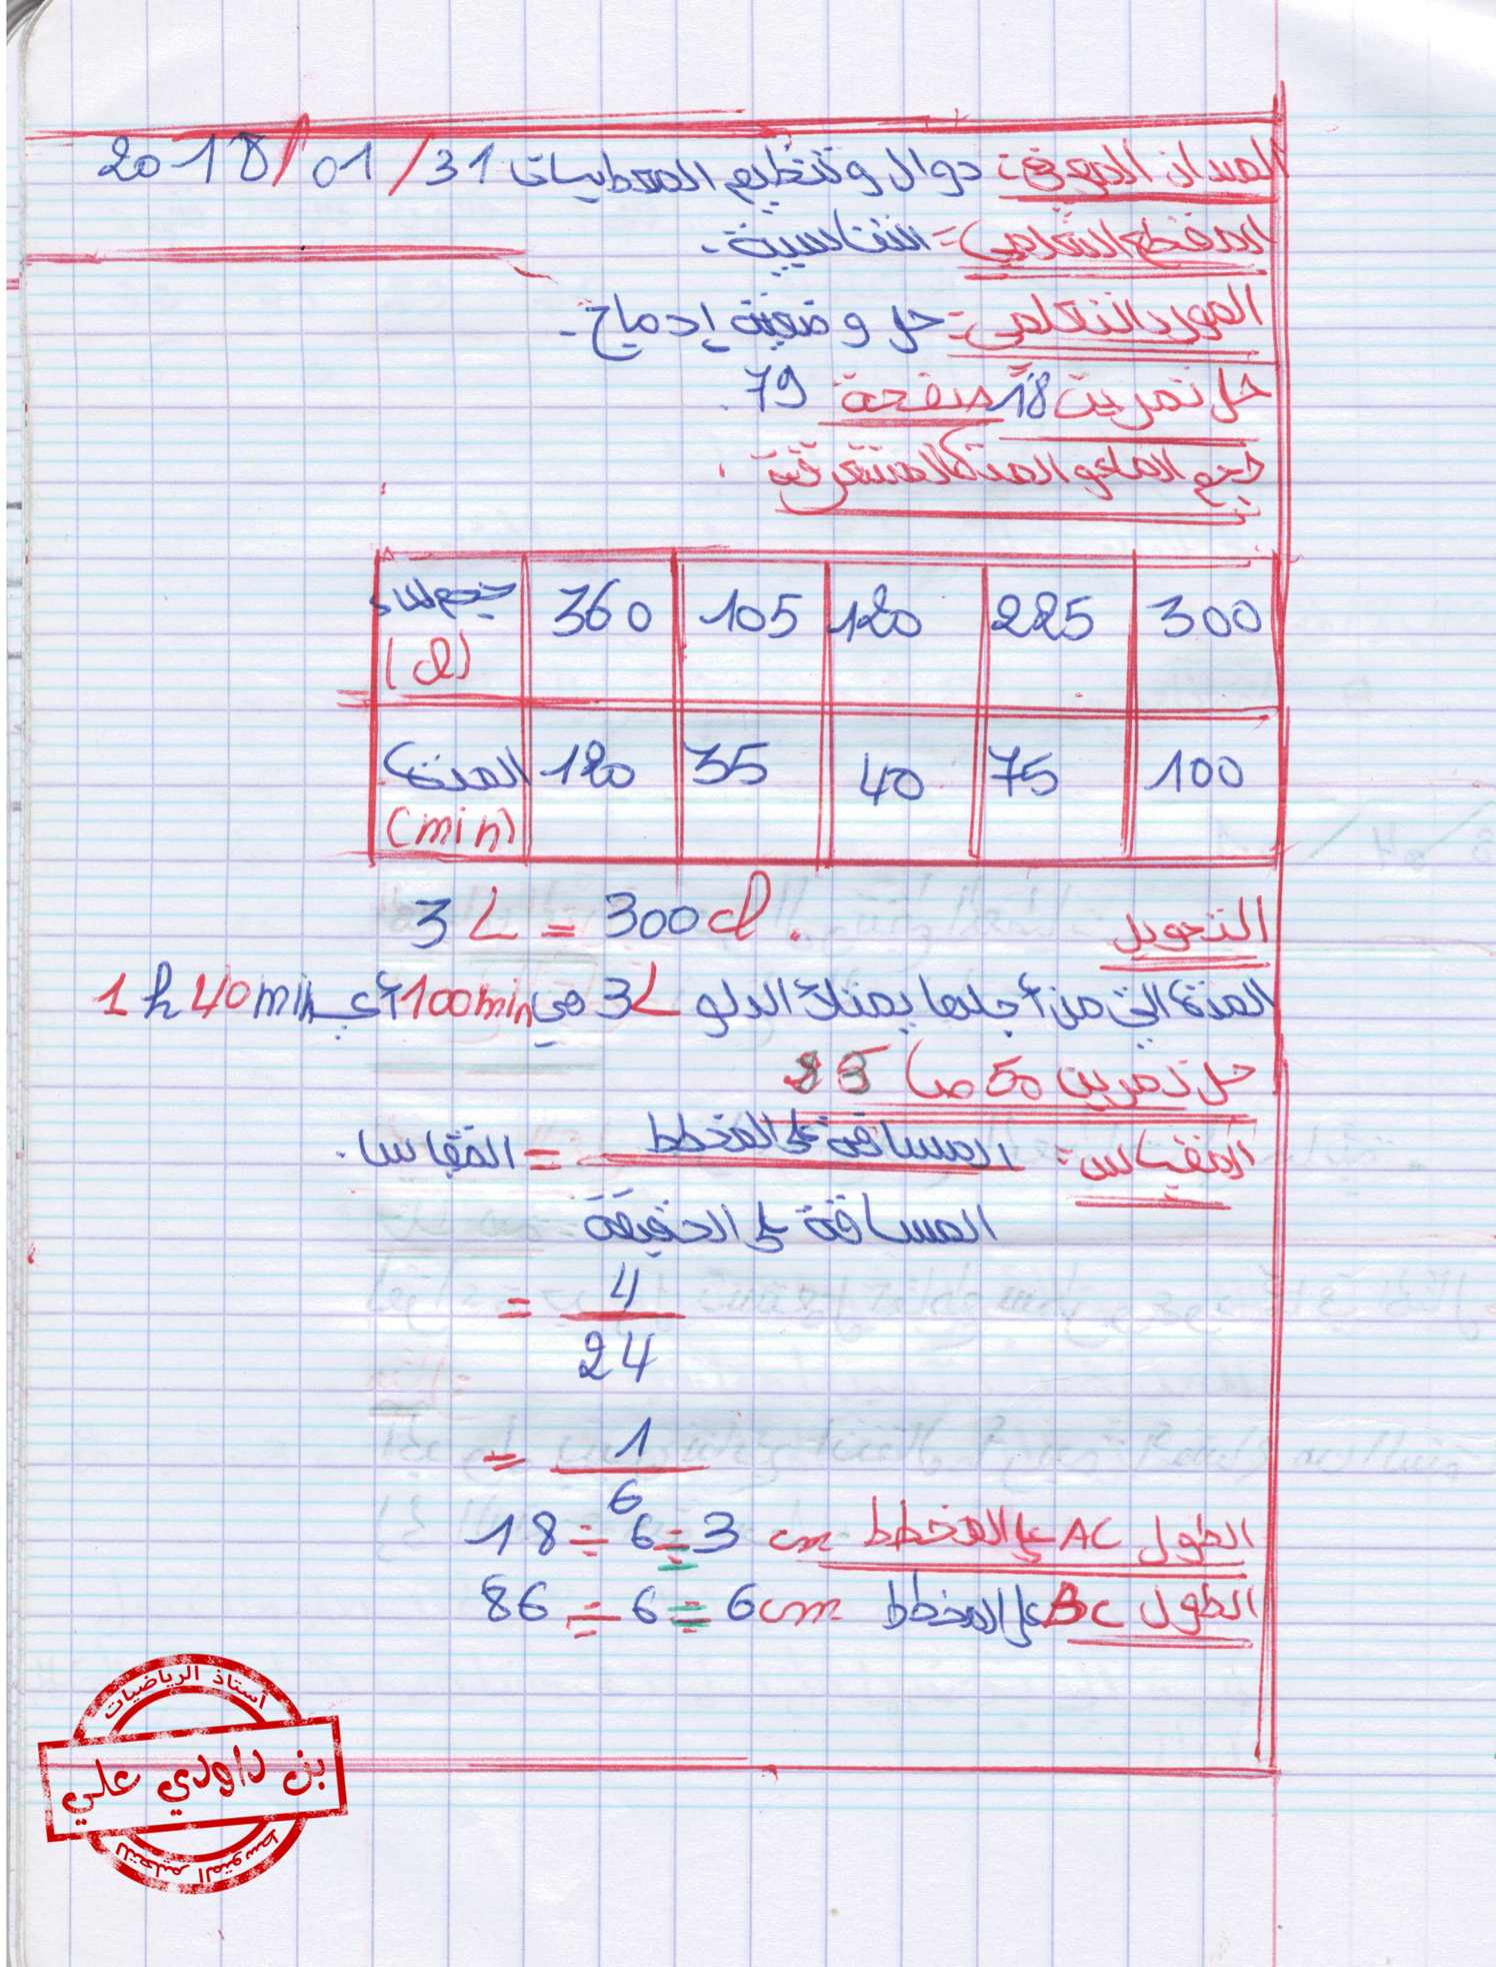 الميدان المعرفي: دوال وتنظيم المعطيات 31/01/2018
المقطع التعلمي: التناسبية.
المورد التعلمي: حل وضعية إدماج.
حل تمرين 18 صفحة 79.
حجم الماء و المدة المستغرقة.
حجم الماء (cl) 360 105 120 225 300
المدة (min) 120 35 40 75 100
التحويل 3L = 300cl.
المدة التي من أجلها يمتلئ الدلو 3L هي 100min أي 1h 40min
حل تمرين 50 ص 85
المقياس: المسافة على المخطط = المقياس.
المسافة على الحقيقة
= 4
24
= 1
6
الطول AC على المخطط 18 ÷ 6 = 3 cm
الطول BC على المخطط 86 ÷ 6 = 6cm
أستاذ الرياضيات
بن داودي علي
للتعليم المتوسط